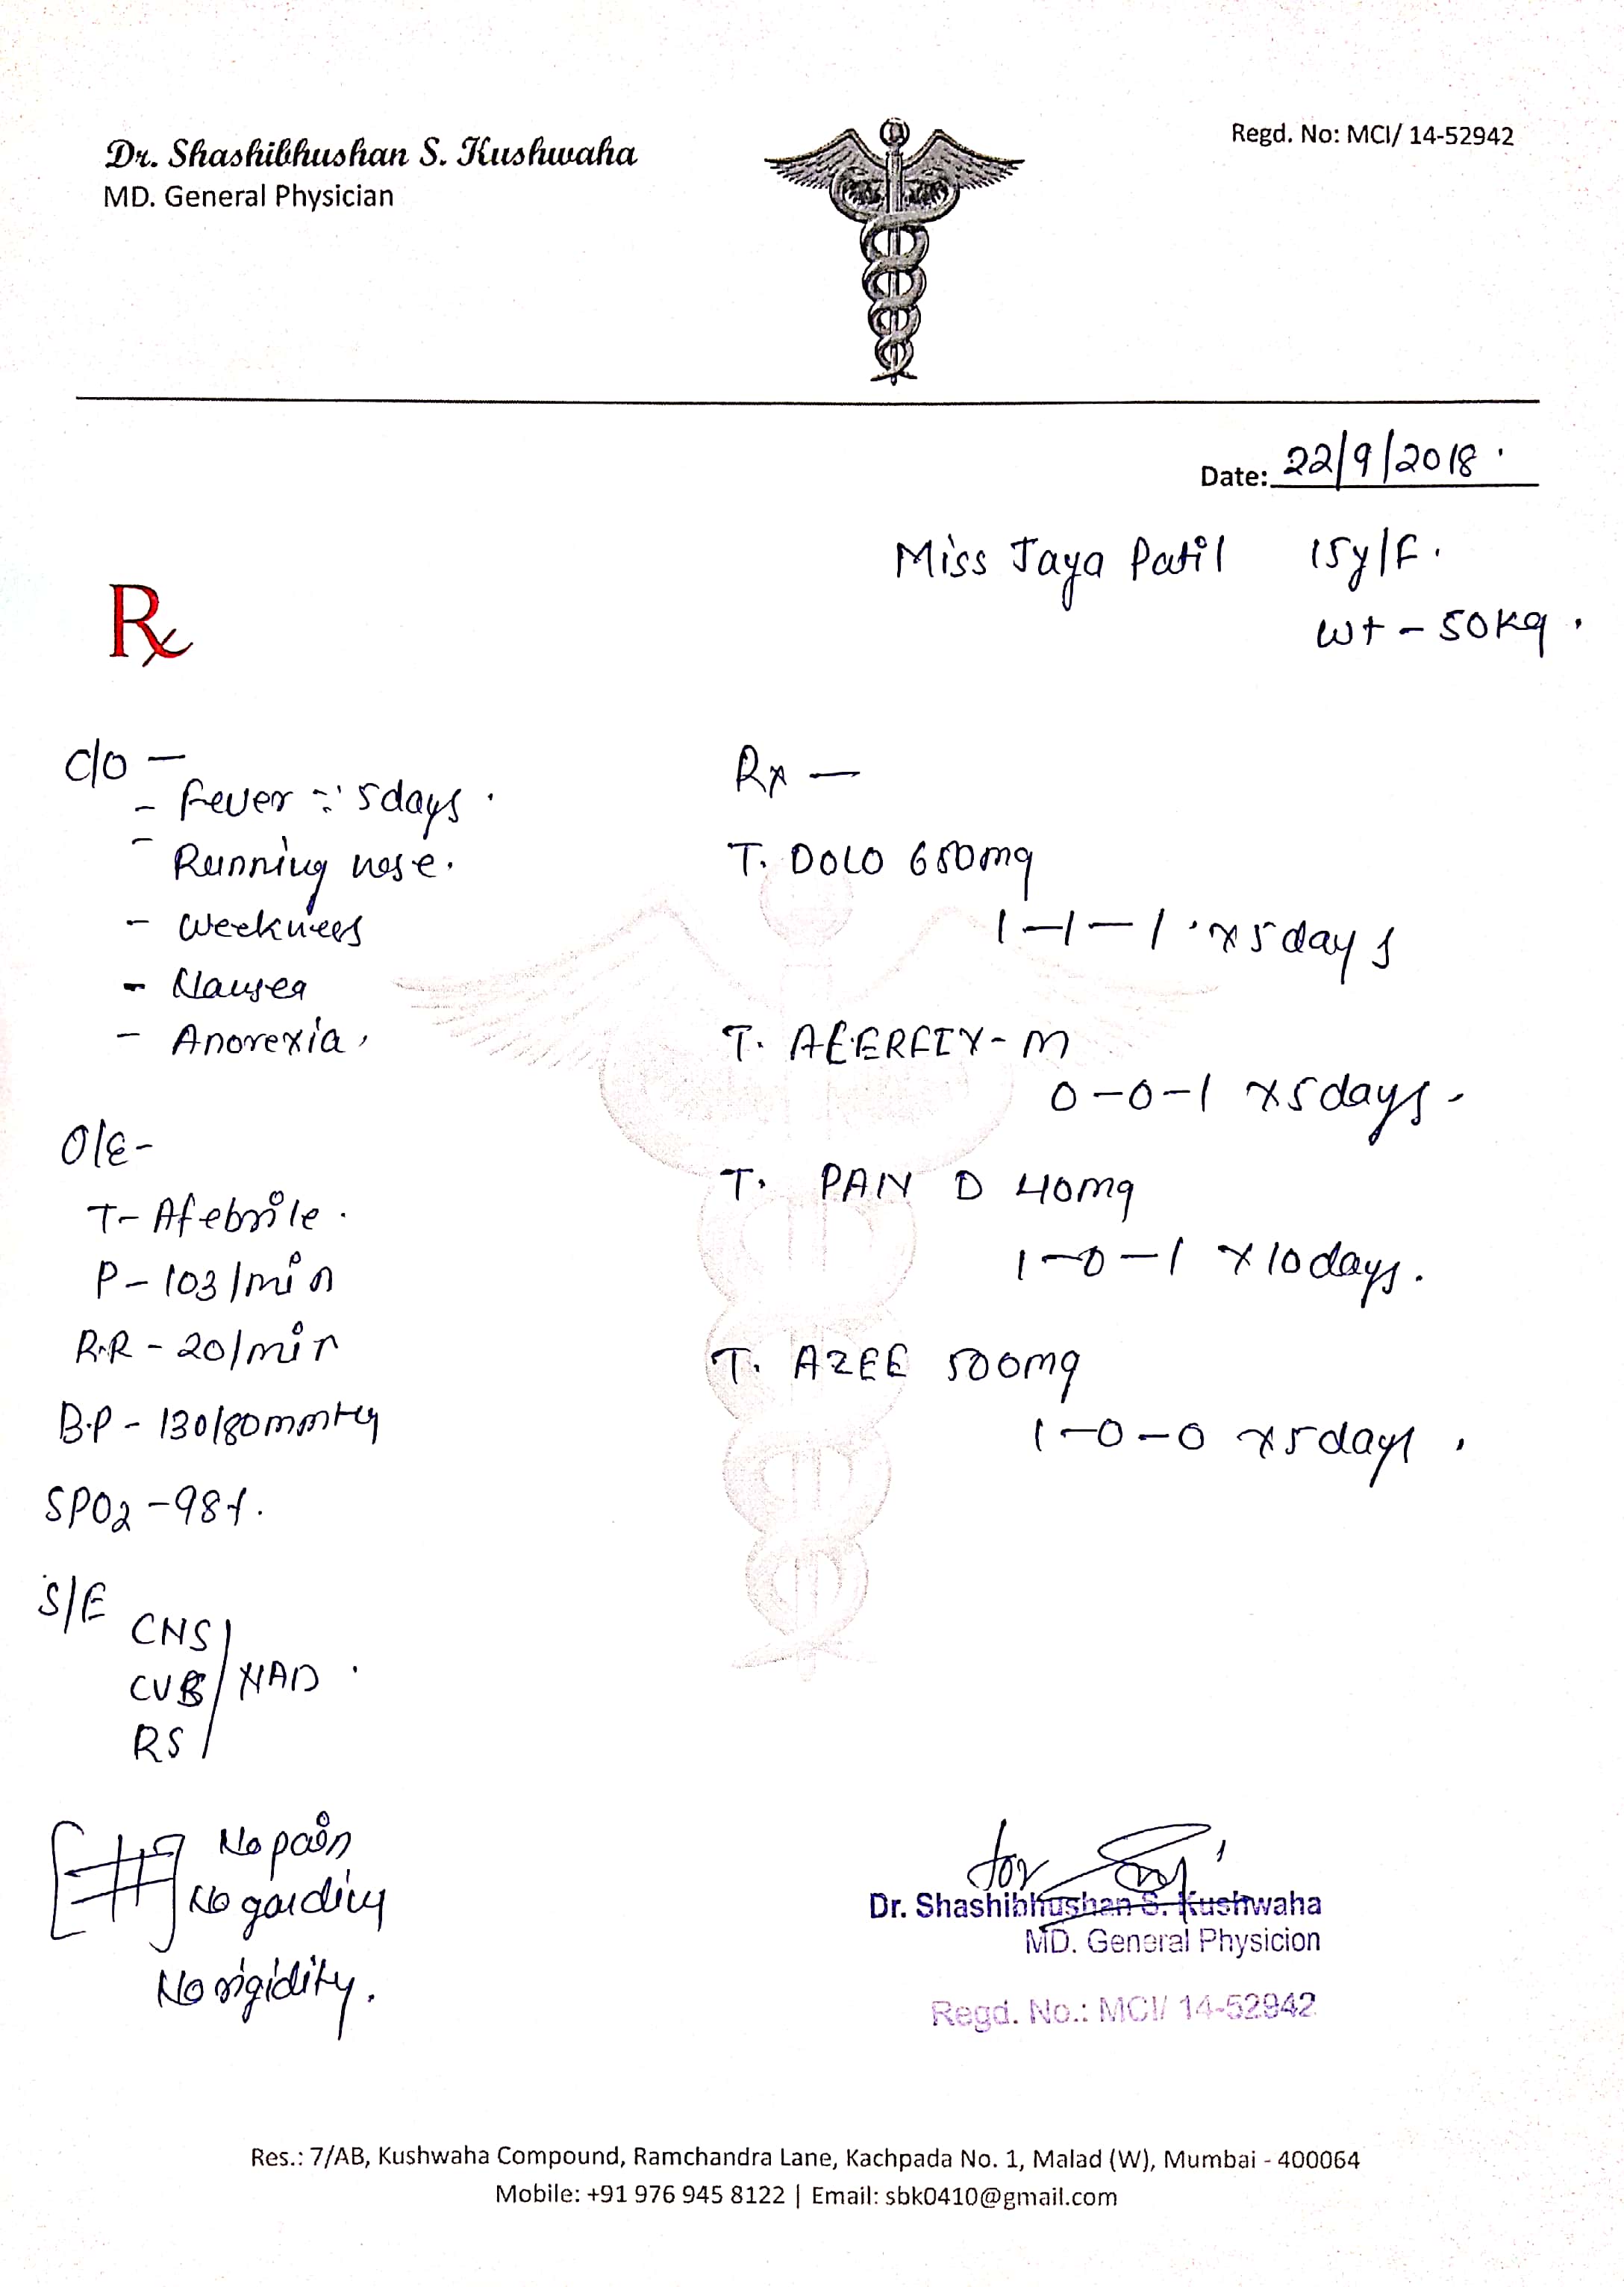 Dr. Shashibhushan S. Kushwaha
MD. General Physician
Regd. No: MCI/ 14-52942
Date: 22/9/2018
Miss Jaya Patil 15y/F.
wt - 50kg.
Rx
C/O -
- Fever ∵ 5days.
- Running nose.
- Weeknees
- Nausea
- Anorexia,
O/E-
T- Afebrile.
P- 103/min
R.R - 20/min
B.P - 130/80mmHg
SPO2 - 98%.
S/E
CNS
CVS / NAD.
RS
No pain
No garding
No rigidity.
Rx -
T. DOLO 650mg
1-1-1 x 5days
T. -M
0-0-1 x 5days-
T. PAN D 40mg
1-0-1 x 10days.
T. AZEE 500mg
1-0-0 x 5days.
for
Dr. Shashibhushan S. Kushwaha
MD. General Physicion
Regd. No.: MCI/ 14-52942
Res.: 7/AB, Kushwaha Compound, Ramchandra Lane, Kachpada No. 1, Malad (W), Mumbai - 400064
Mobile: +91 976 945 8122 | Email: sbk0410@gmail.com